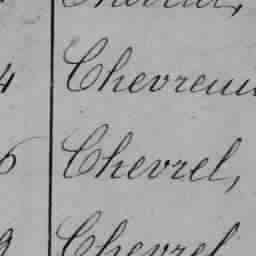 4 Chevreu
6 Chevrel,
9 Chevrel